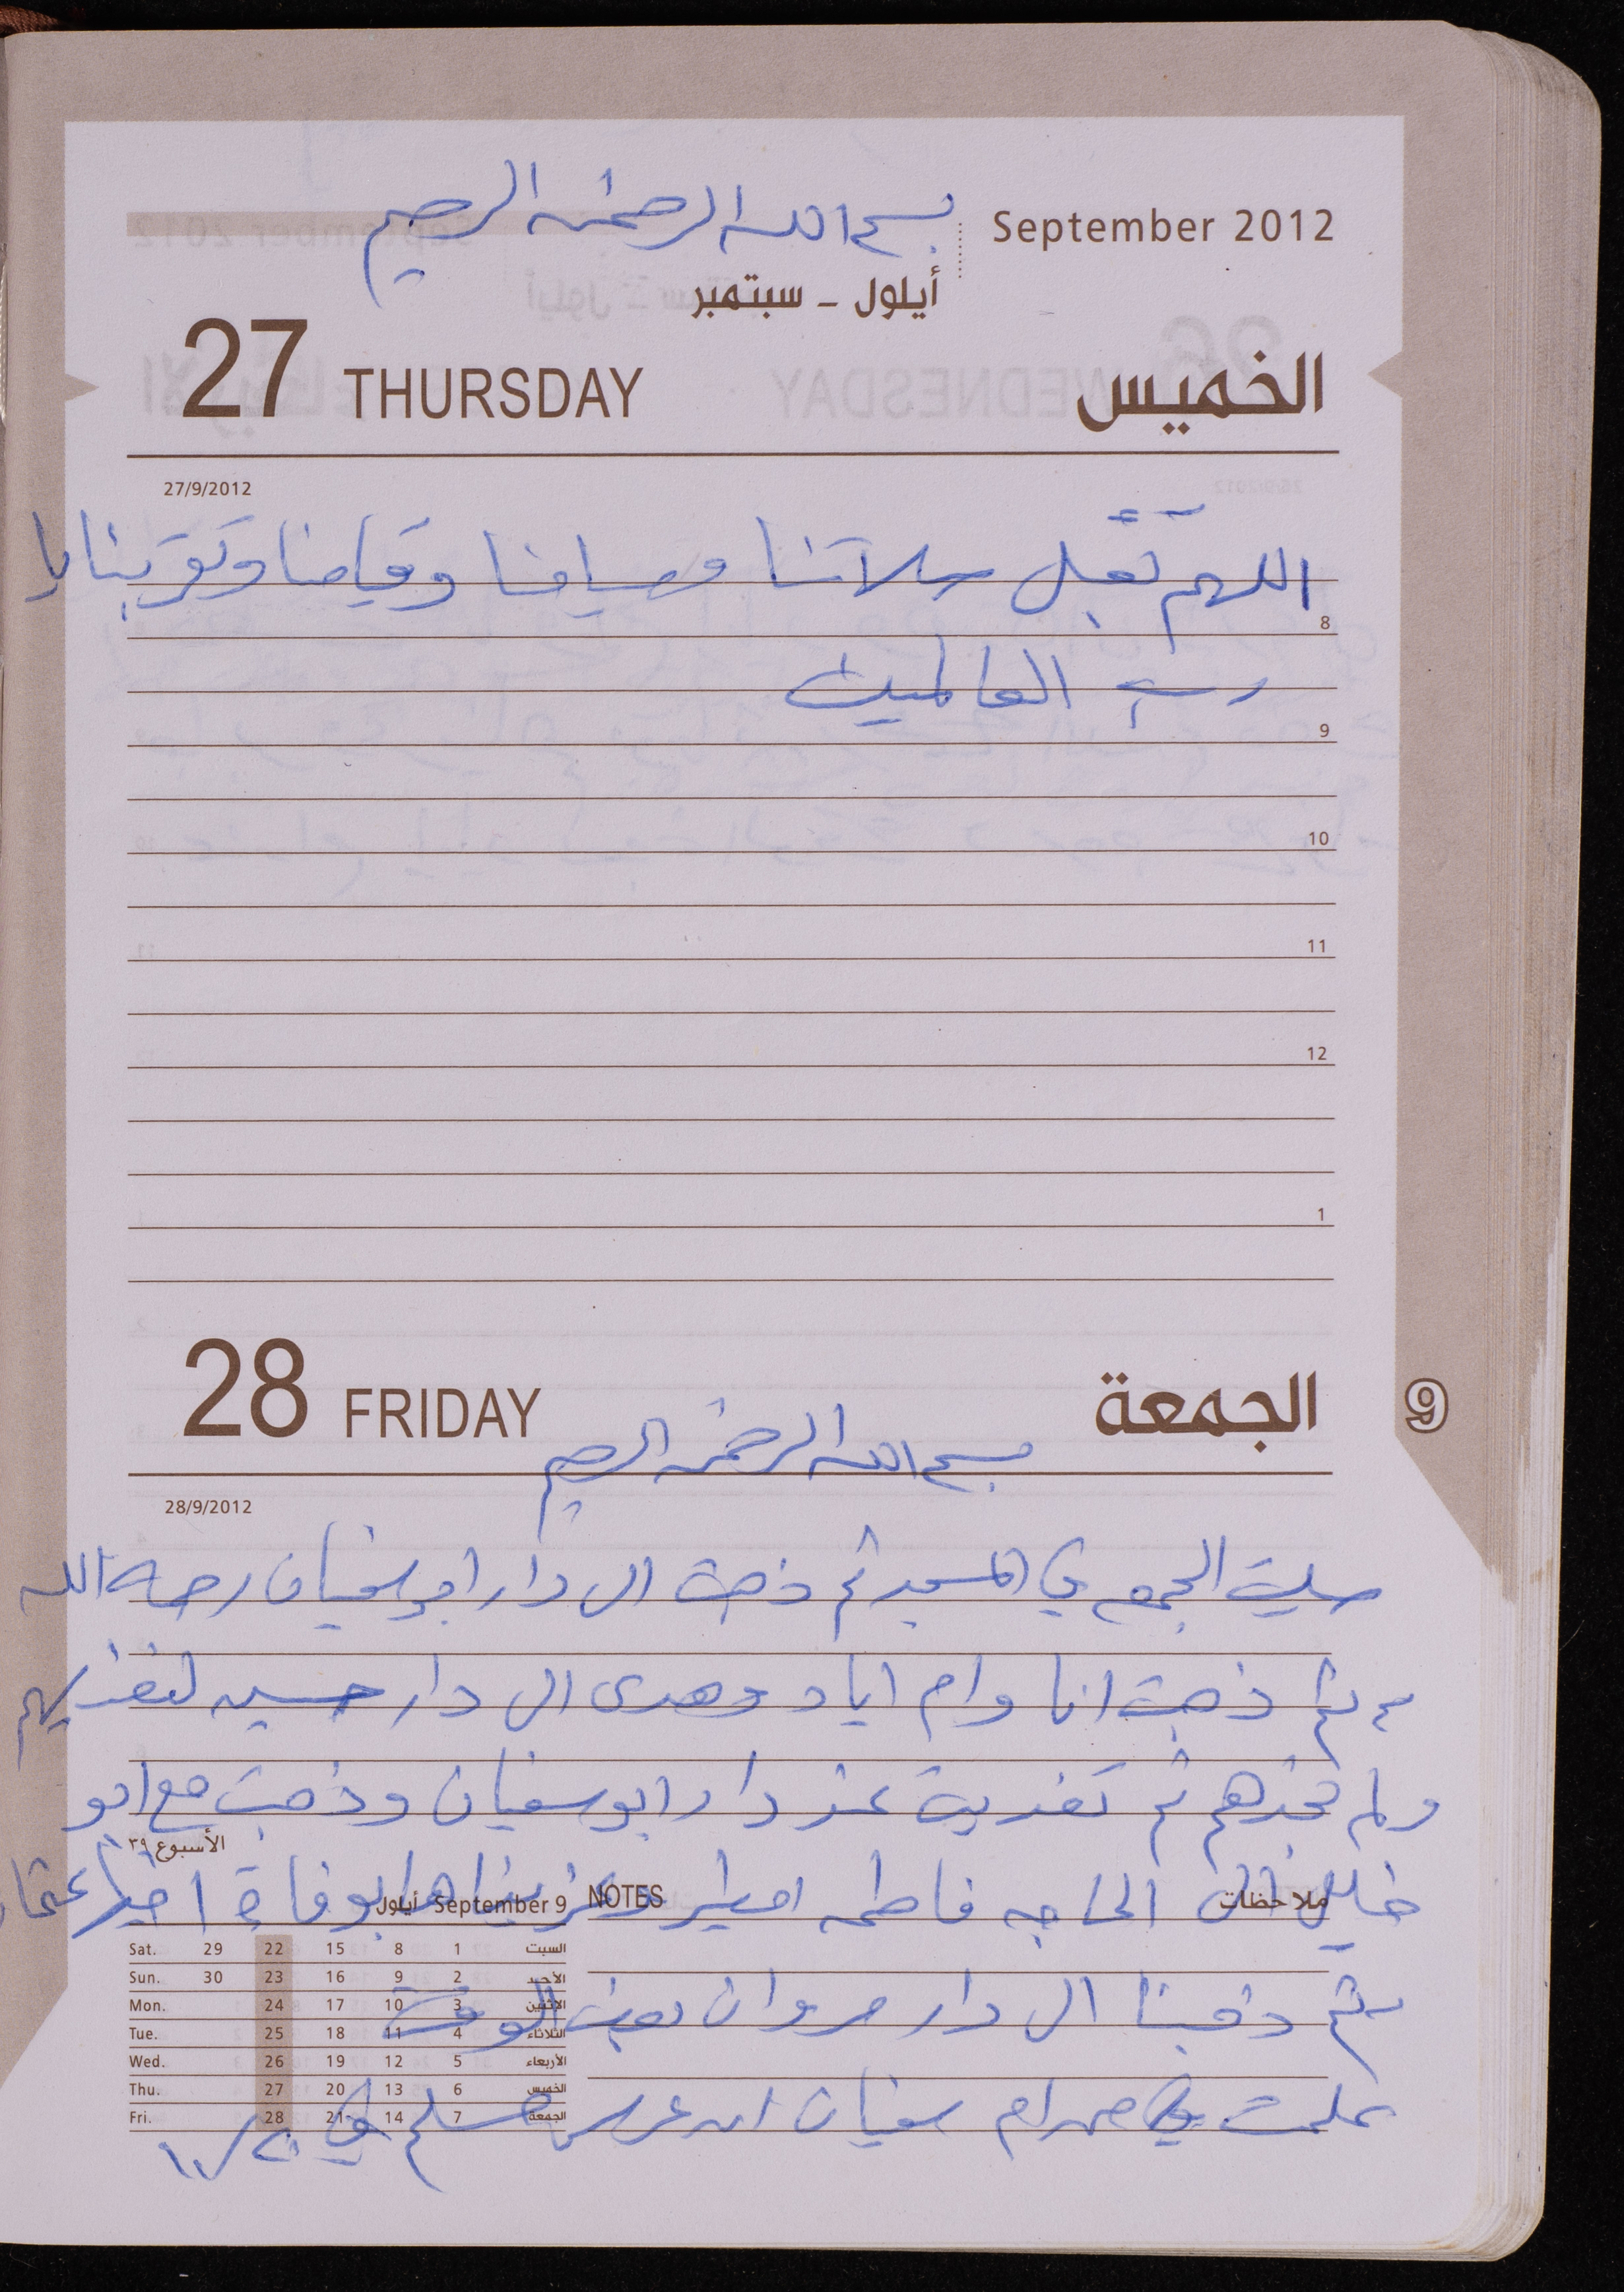 بسم الله الرحمن الرحيم
September 2012
أيلول - سبتمبر
27 THURSDAY الخميس
27/9/2012
اللهم تقبل صلاتنا وصيامنا وقيامنا وتقربنا يا
8
رب العالمين
9
10
11
12
1
28 FRIDAY الجمعة
9
بسم الله الرحمن الرحيم
28/9/2012
صليت الجمعه في المسجد ثم ذهبت الى دار ابو سفيان رحمه الله
ثم ذهبت انا وام اياد وهدى الى دار حسين لنعزيهم
ولم نجدهم ثم تغديت عند دار ابو سفيان وذهبت مع ابو
الأسبوع ٣٩
خليل الى الحاجه فاطمه وعزيناها بوفاة اخيها
ملاحظات NOTES September 9 أيلول
Sat. 29 22 15 8 1 السبت
Sun. 30 23 16 9 2 الأحد
Mon. 24 17 10 3 الاثنين
Tue. 25 18 11 4 الثلاثاء
Wed. 26 19 12 5 الأربعاء
Thu. 27 20 13 6 الخميس
Fri. 28 21 14 7 الجمعة
ثم ذهبنا الى دار مروان بعض الوقت
علمت من ام سفيان ان عرس مسلم في